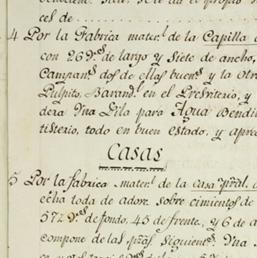 ces de
4 Por la Fabrica mater.l de la Capilla
con 26 v.s de largo y Siete de ancho,
Campan.s dos de ellas buen.s y la otra
Pulpito, Barand.s en el Presviterio, y
dera Una Pila para Agua Bendi
tisterio, todo en buen estado, y apre
Casas
5 Por la fabrica mater.l de la casa
echa toda de adov.s sobre cimientos de
57 v.s de fondo, 45 de frente, y 6 de a
compone de las siguien.s Una